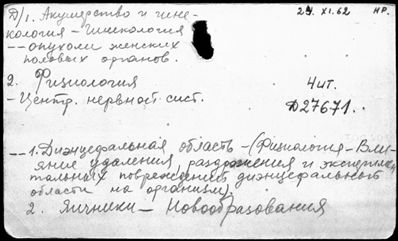 Д/1. Акушерство и гине-
кология – Гинекология
-- опухоли женских
половых органов.
24.XI.62 НР.
2. Физиология
- Центр. нервност сист.
4 ит.
Д27671.
-- 1. Диэнцефальная область – (Физиология – Вли-
яние удаления, раздражения и эксперимен
тальных повреждений диэнцефальной
области на организм).
2. Яичники – Новообразования